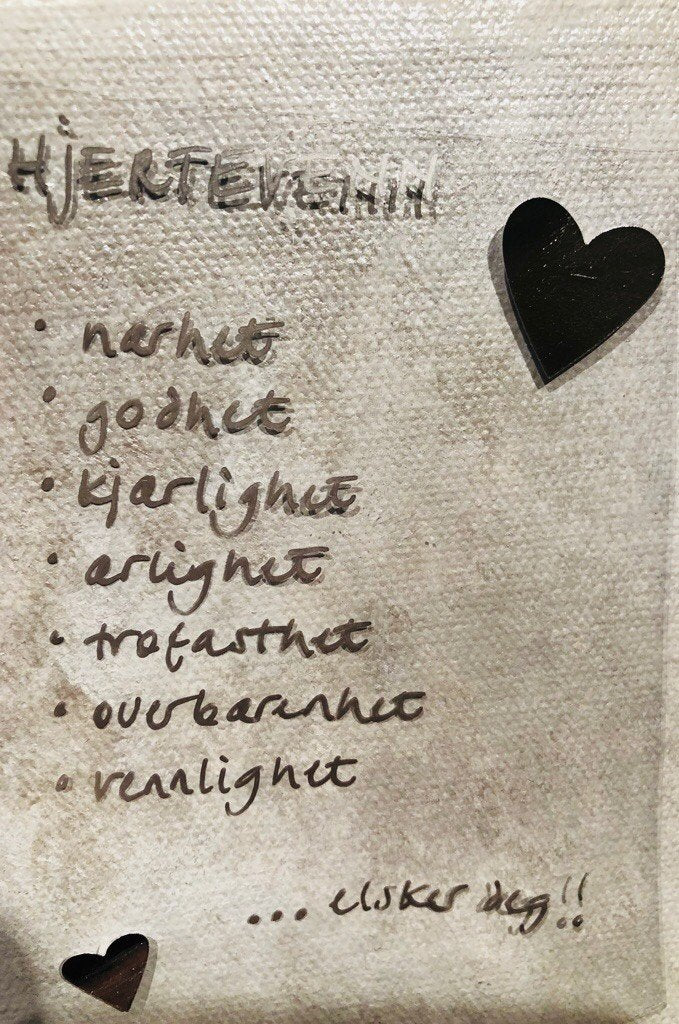 HjERTEVENN
• nærhet
• godhet
• kjærlighet
• ærlighet
• trofasthet
• overbærenhet
• vennlighet
... elsker deg!!